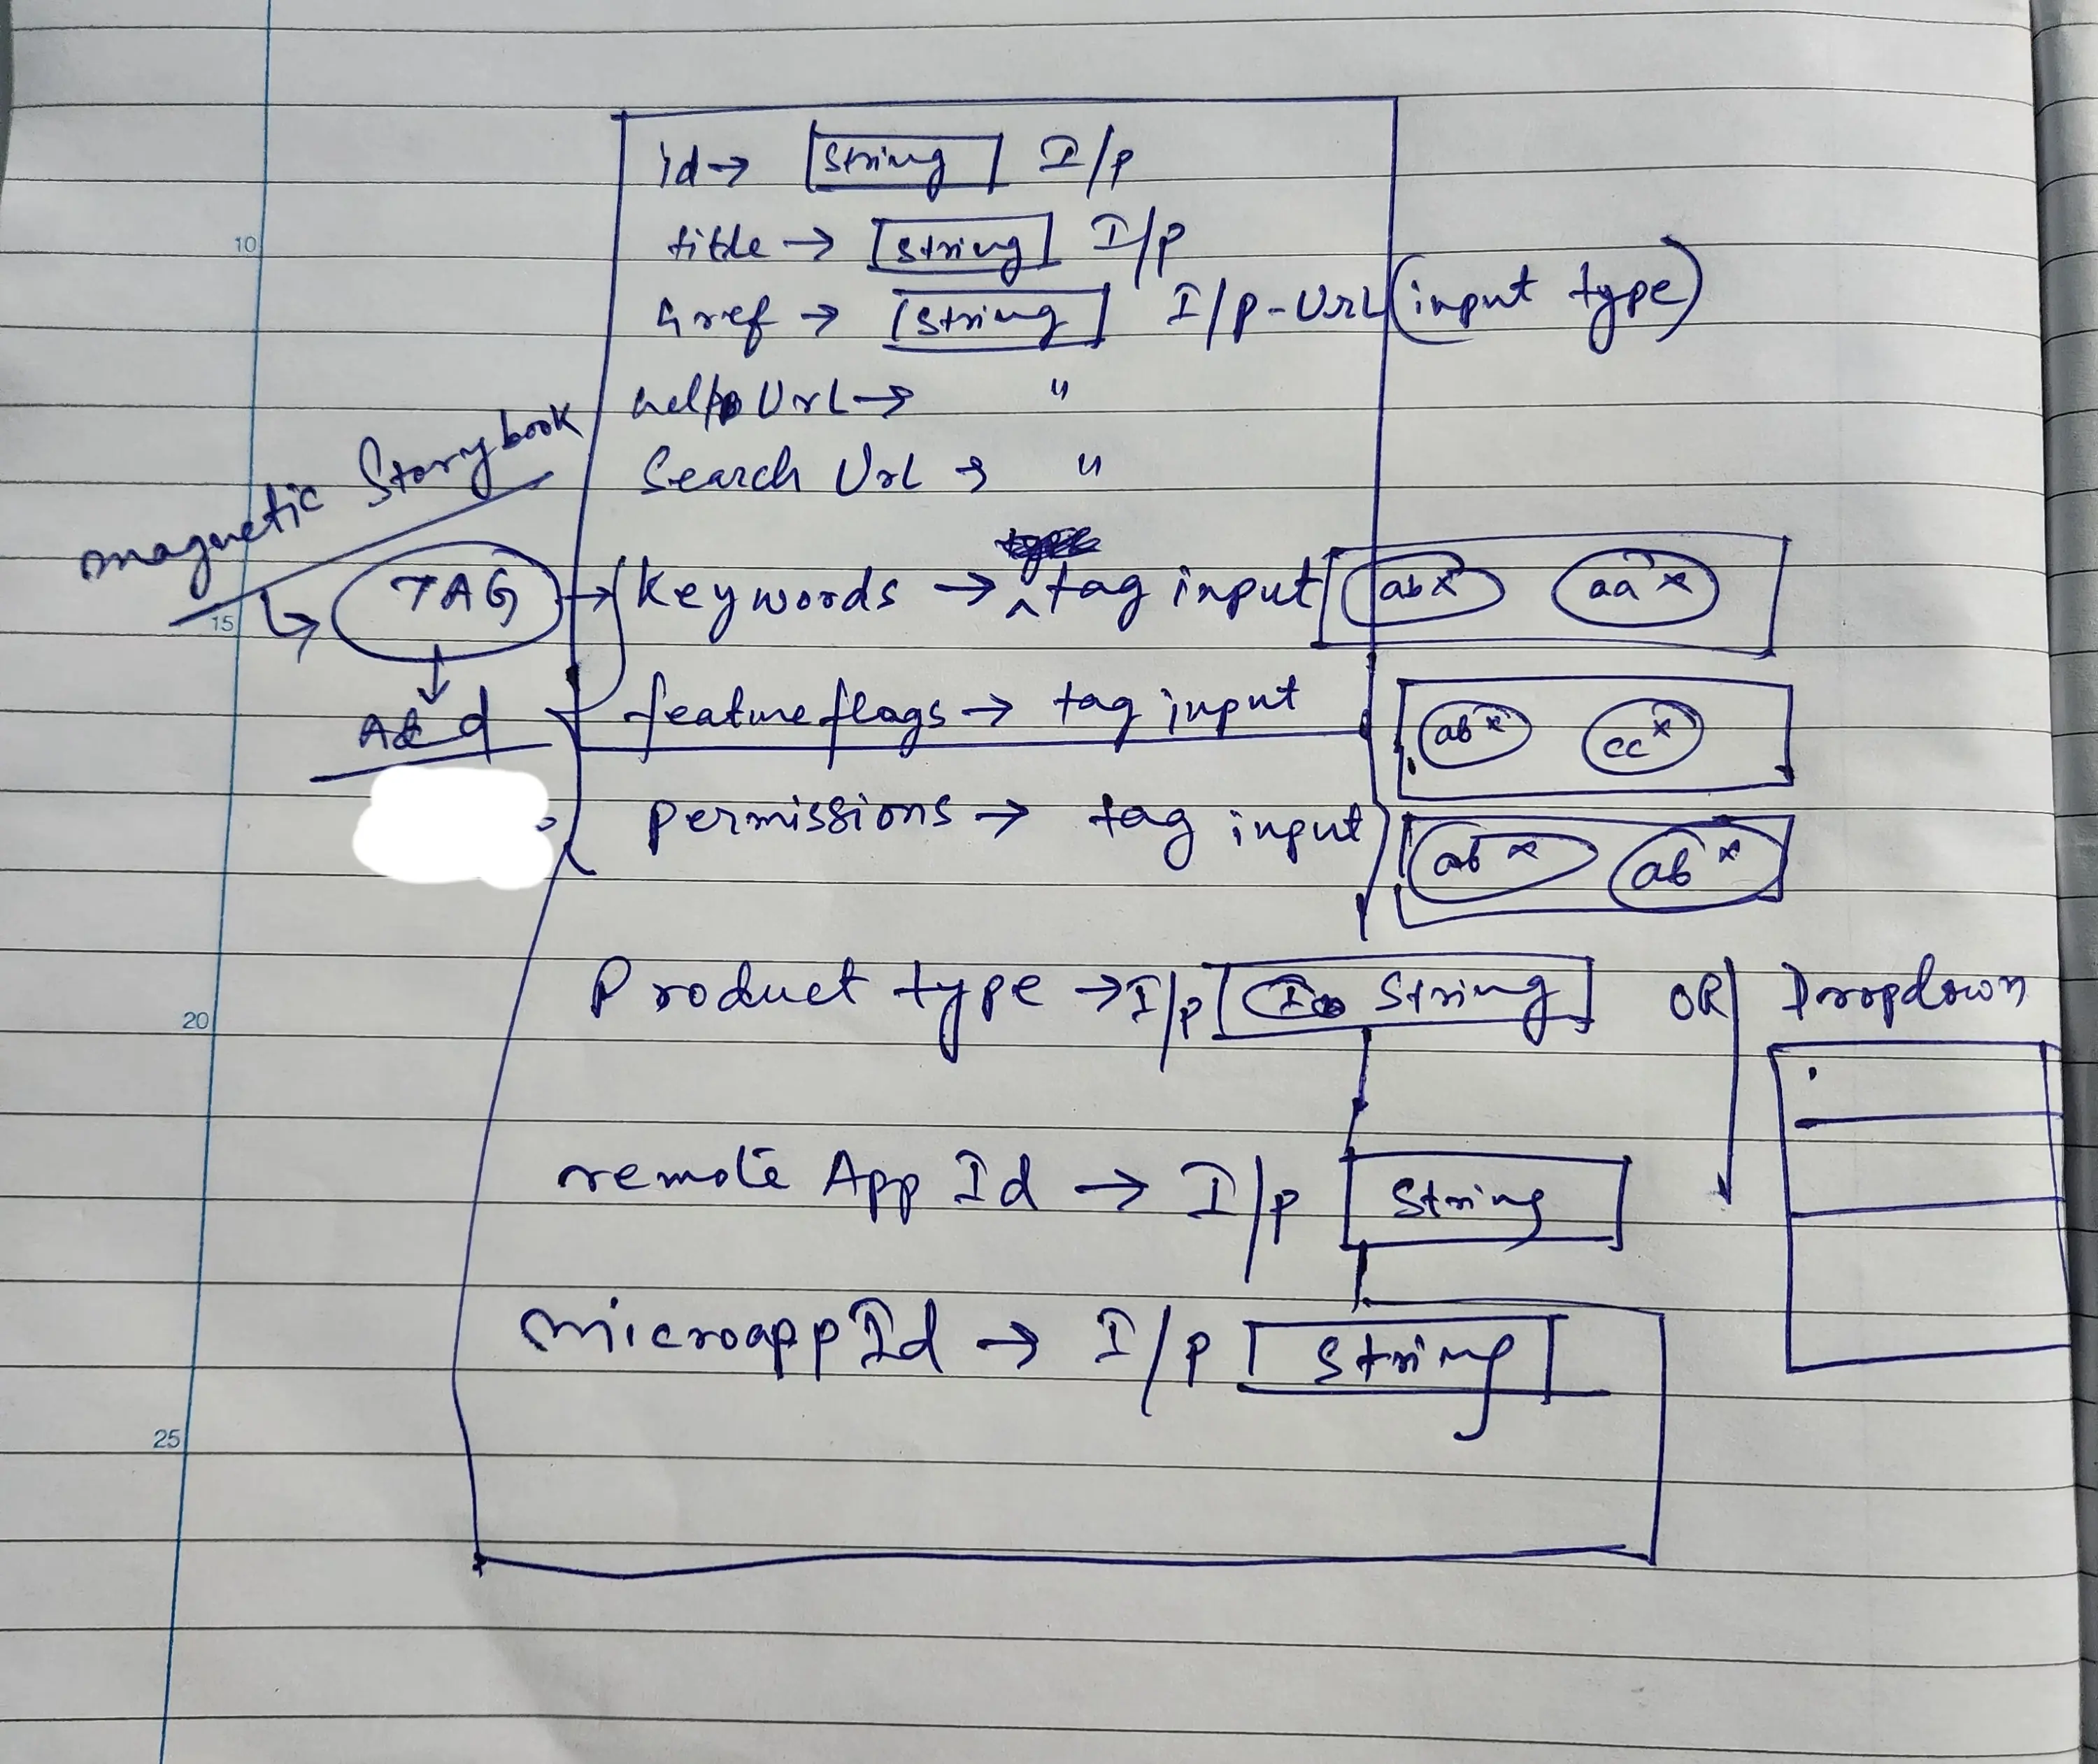 id → String I/p
title → String I/p
href → String I/p - Url (input type)
help Url → "
Search Url → "
magnetic Storybook
TAG → Keywords → tag input abx aax
feature flags → tag input abx ccx
permissions → tag input abx abx
Product type → I/p String OR Dropdown
remote App Id → I/p String
microapp Id → I/p String
10
15
20
25